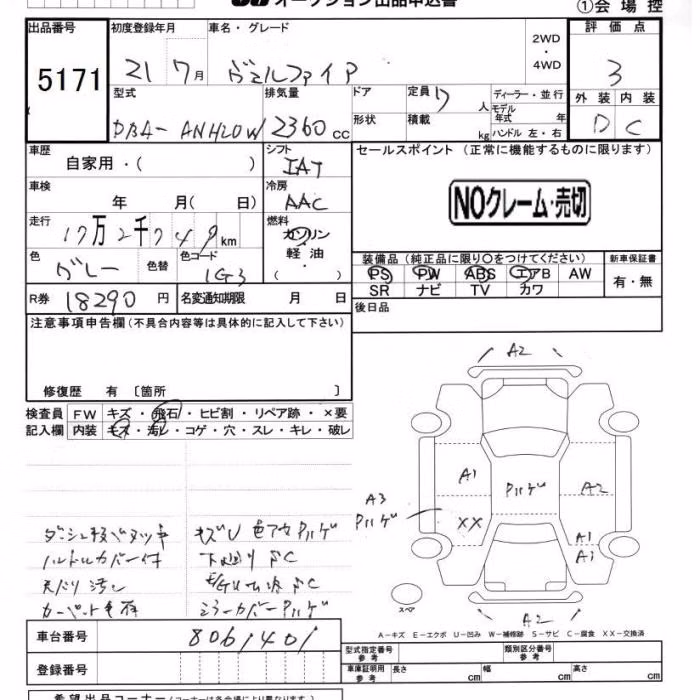 オークション出品申込書
①会場控
出品番号 5171
初度登録年月 21 7月
車名・グレード ヴェルファイア
2WD・4WD
評価点 3
型式 DBA- ANH20W
排気量 2360 cc
ドア 形状
定員 7 人
積載 kg
ディーラー・並行
モデル年式 年
ハンドル 左・右
外装 D
内装 C
車歴 自家用・( )
シフト IAT
セールスポイント (正常に機能するものに限ります)
車検 年 月( 日)
冷房 AAC
NOクレーム・売切
走行 17万2千749km
燃料 ガソリン 軽油・( )
色 グレー 色替
色コード 1G3
装備品 (純正品に限り○をつけてください)
新車保証書 有・無
PS PW ABS エアB AW
SR ナビ TV カワ
R券 18290 円
名変通知期限 月 日
後日品
注意事項申告欄 (不具合内容等は具体的に記入して下さい)
修復歴 有 〔箇所 〕
検査員記入欄
FW キズ・飛石・ヒビ割・リペア跡・×要
内装 キズ・汚レ・コゲ・穴・スレ・キレ・破レ
A2
A1
ハゲ
A2
A3
ハゲ
XX
A1
A3
A2
スペア
キズU 色アセ ハゲ
ハンドルカバー付
下廻りSC
ミラーカバーハゲ
A－キズ E－エクボ U－凹み W－補修跡 S－サビ C－腐食 XX－交換済
車台番号 8061401
登録番号
型式指定番号 参考
類別区分番号 参考
車庫証明用 参考 長さ cm 幅 cm 高さ cm
希望出品コーナー (コーナーは各会場により異なります)